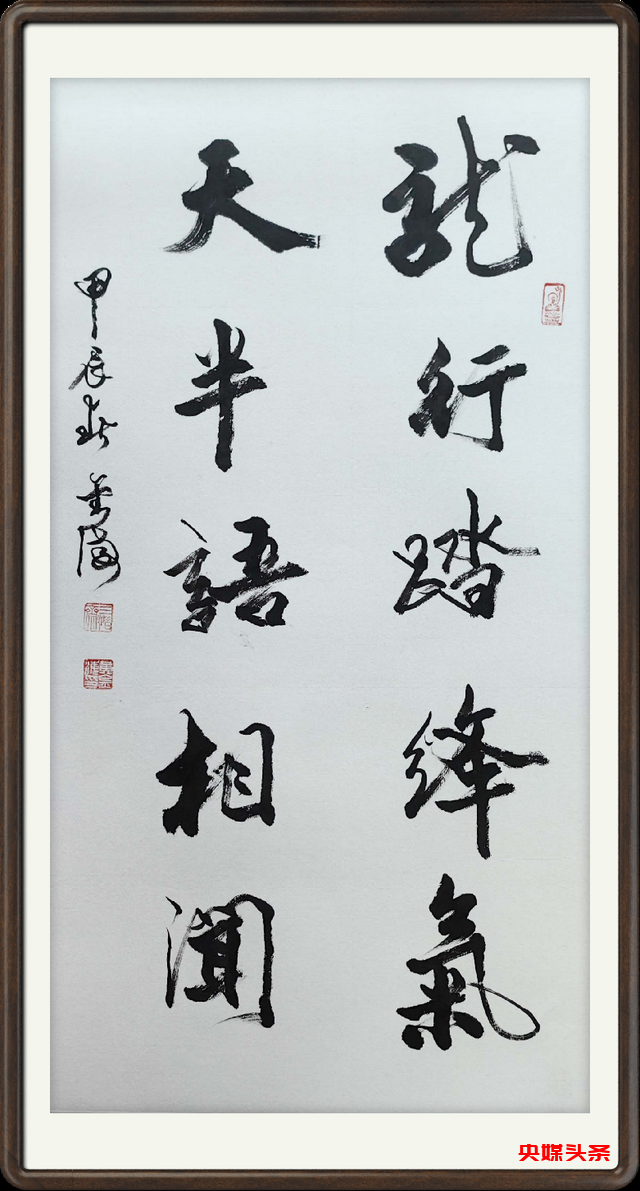 龍行踏絳氣
天半語相聞
甲辰春
央媒头条